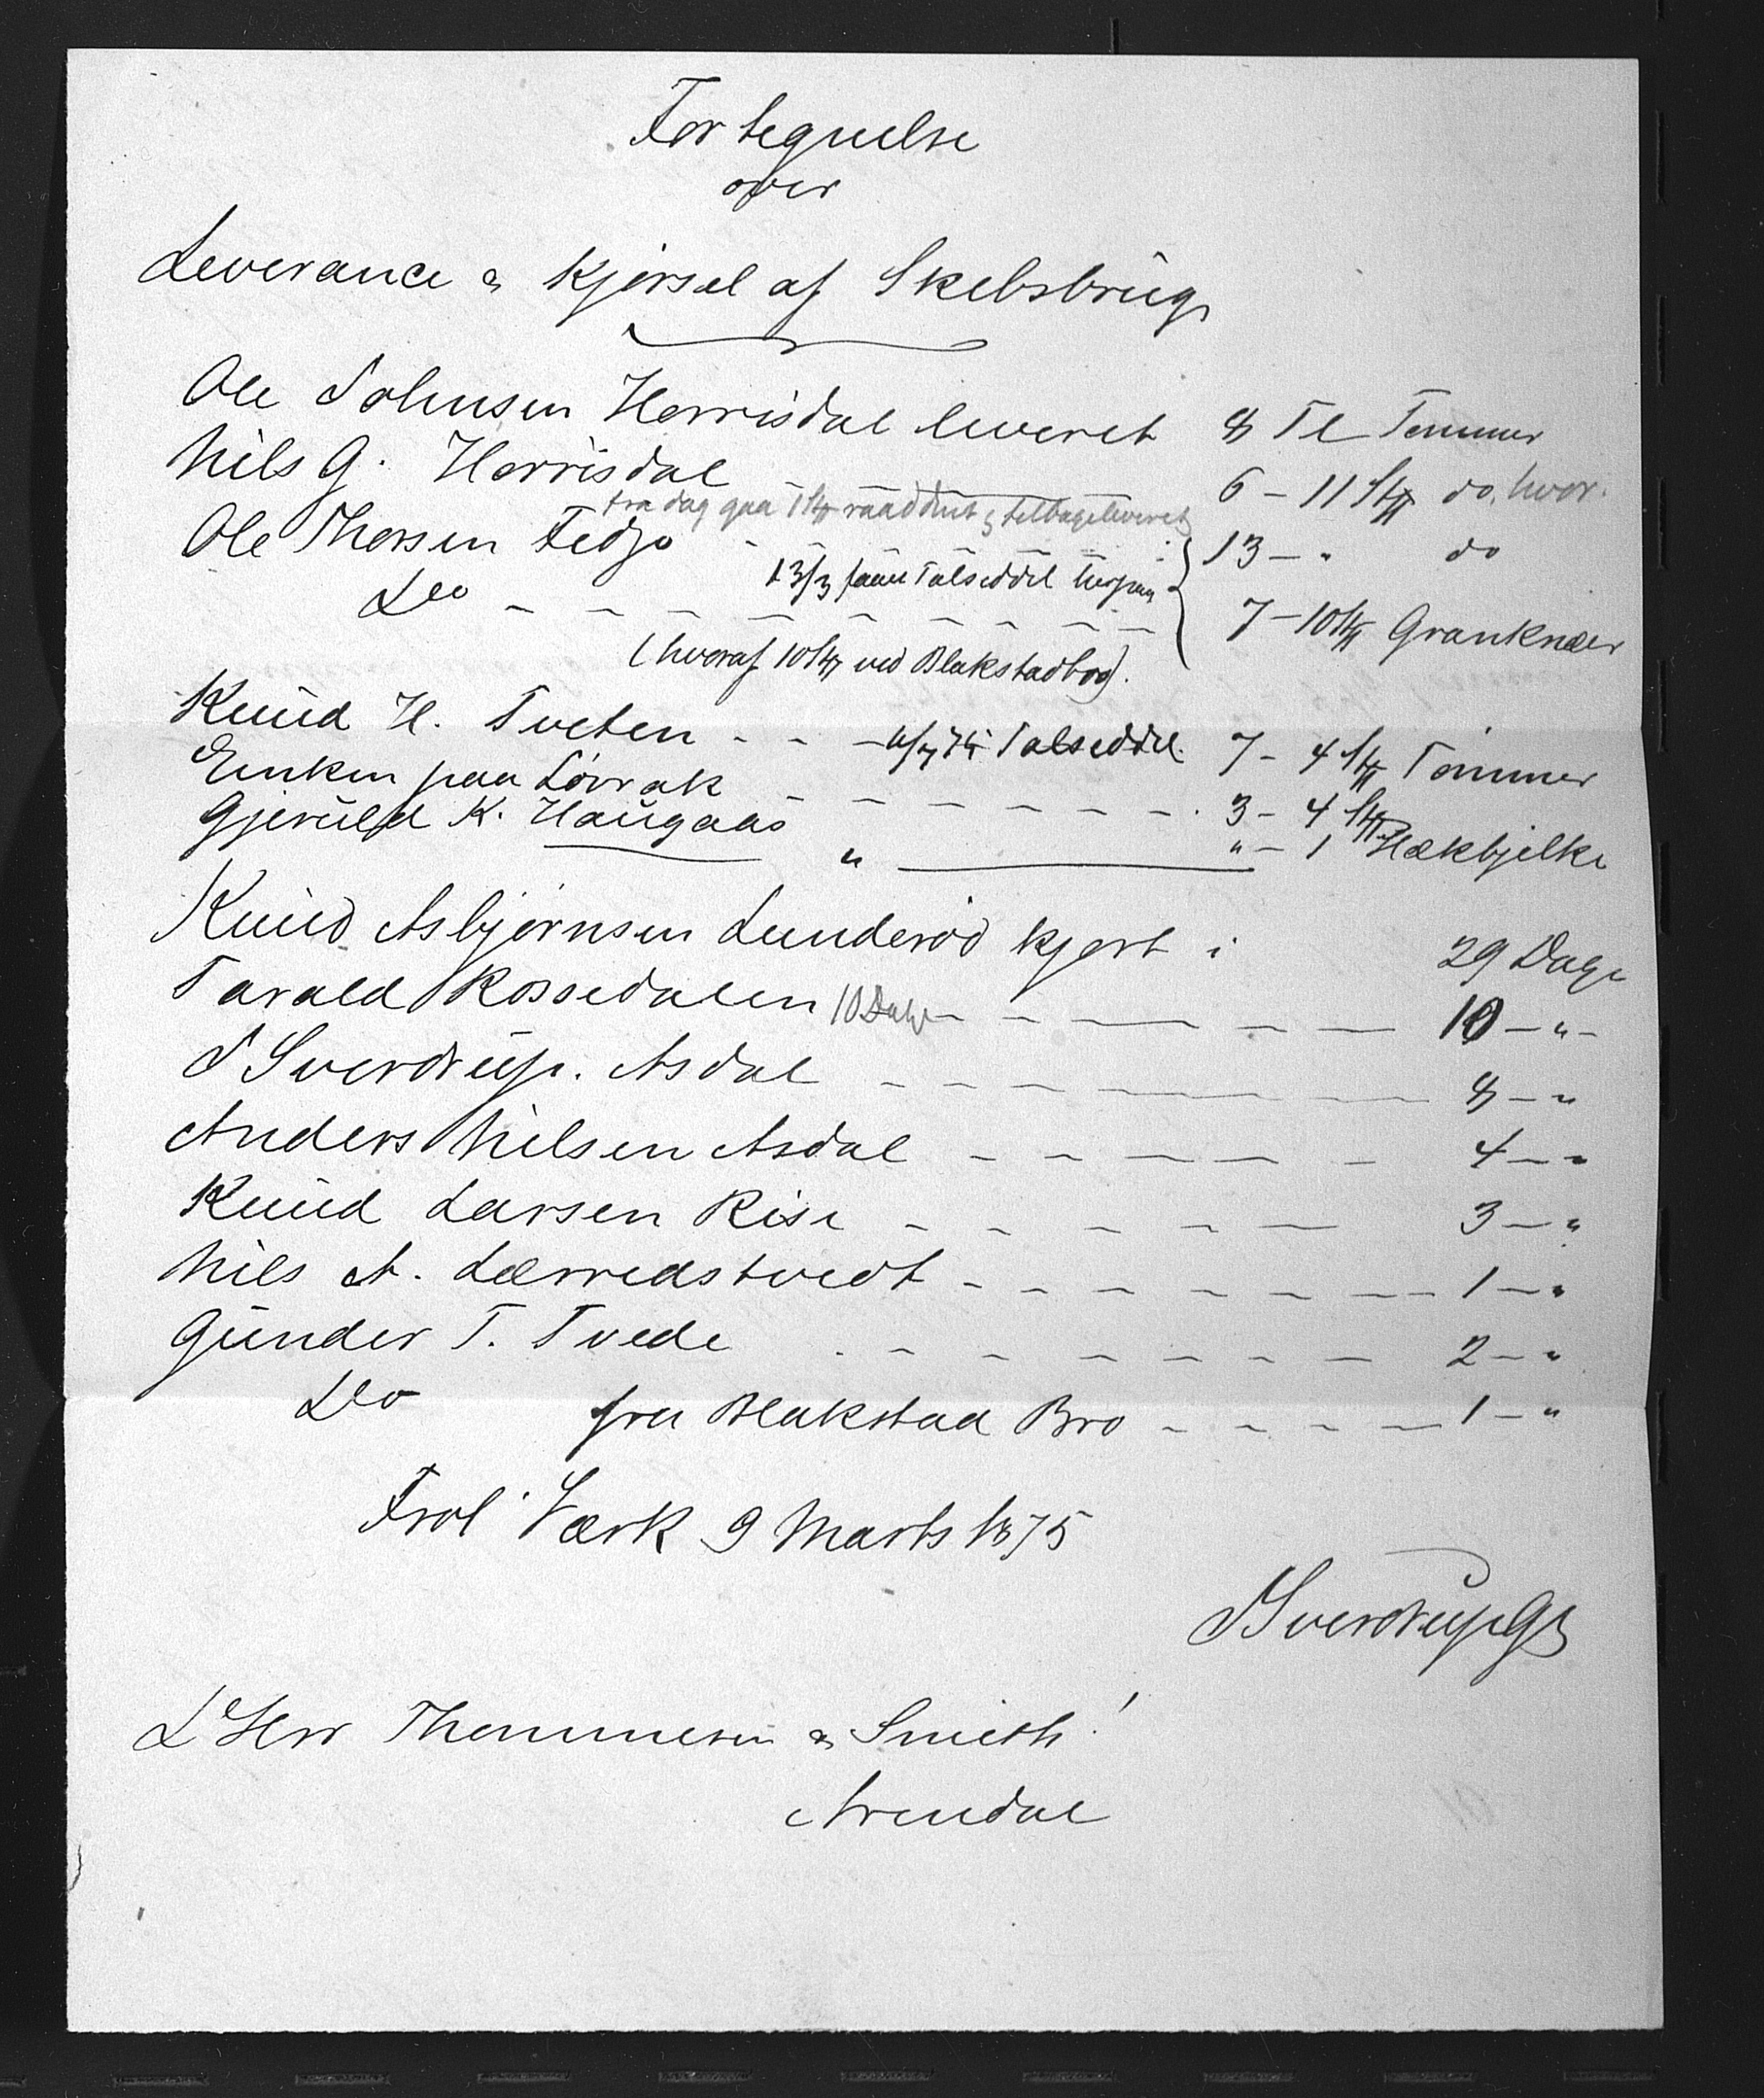 Fortegnelse
over
Leverance & Kjørsel af Skibsbrug
Ole Johnsen Herrisdal leveret 8 Tl Tømmer
Nils G. Herrisdal 6 - 11 Stk do. hvor.
fradag gaa 1 Stk raaddent & tilbageleveret
Ole Thorsen Fedjo 13 - " do
13/3 Talseddel
Do - - - - - - - - 7 - 10 Stk Granknær
(hvoraf 10 Stk ved Blakstadbro).
Knud H. Tveten - - - Talseddel. 7 - 4 Stk Tømmer
Enken paa Løvrak - - - - - - 3 - 4 Stk
Gjeruld K. Haugaas " " - 1 Stk Hækbjelke
Knud Asbjørnsen Lunderød kjørt i 29 Dage
Tarald Rossedalen 10 Dage - - - - - 10 - " -
J Sverdrup. Asdal - - - - - 8 - "
Anders Nilsen Asdal - - - - - 4 - "
Knud Larsen Rise - - - - - 3 - "
Nils A. Lærredstvedt - - - - - - - 1 - "
Gunder T. Tvede - - - - - - - 2 - "
Do fra Blakstad Bro - - - - 1 - "
Frol. Værk 9 Marts 1875
J Sverdrup
D'Hrr Thommesen & Smith!
Arendal